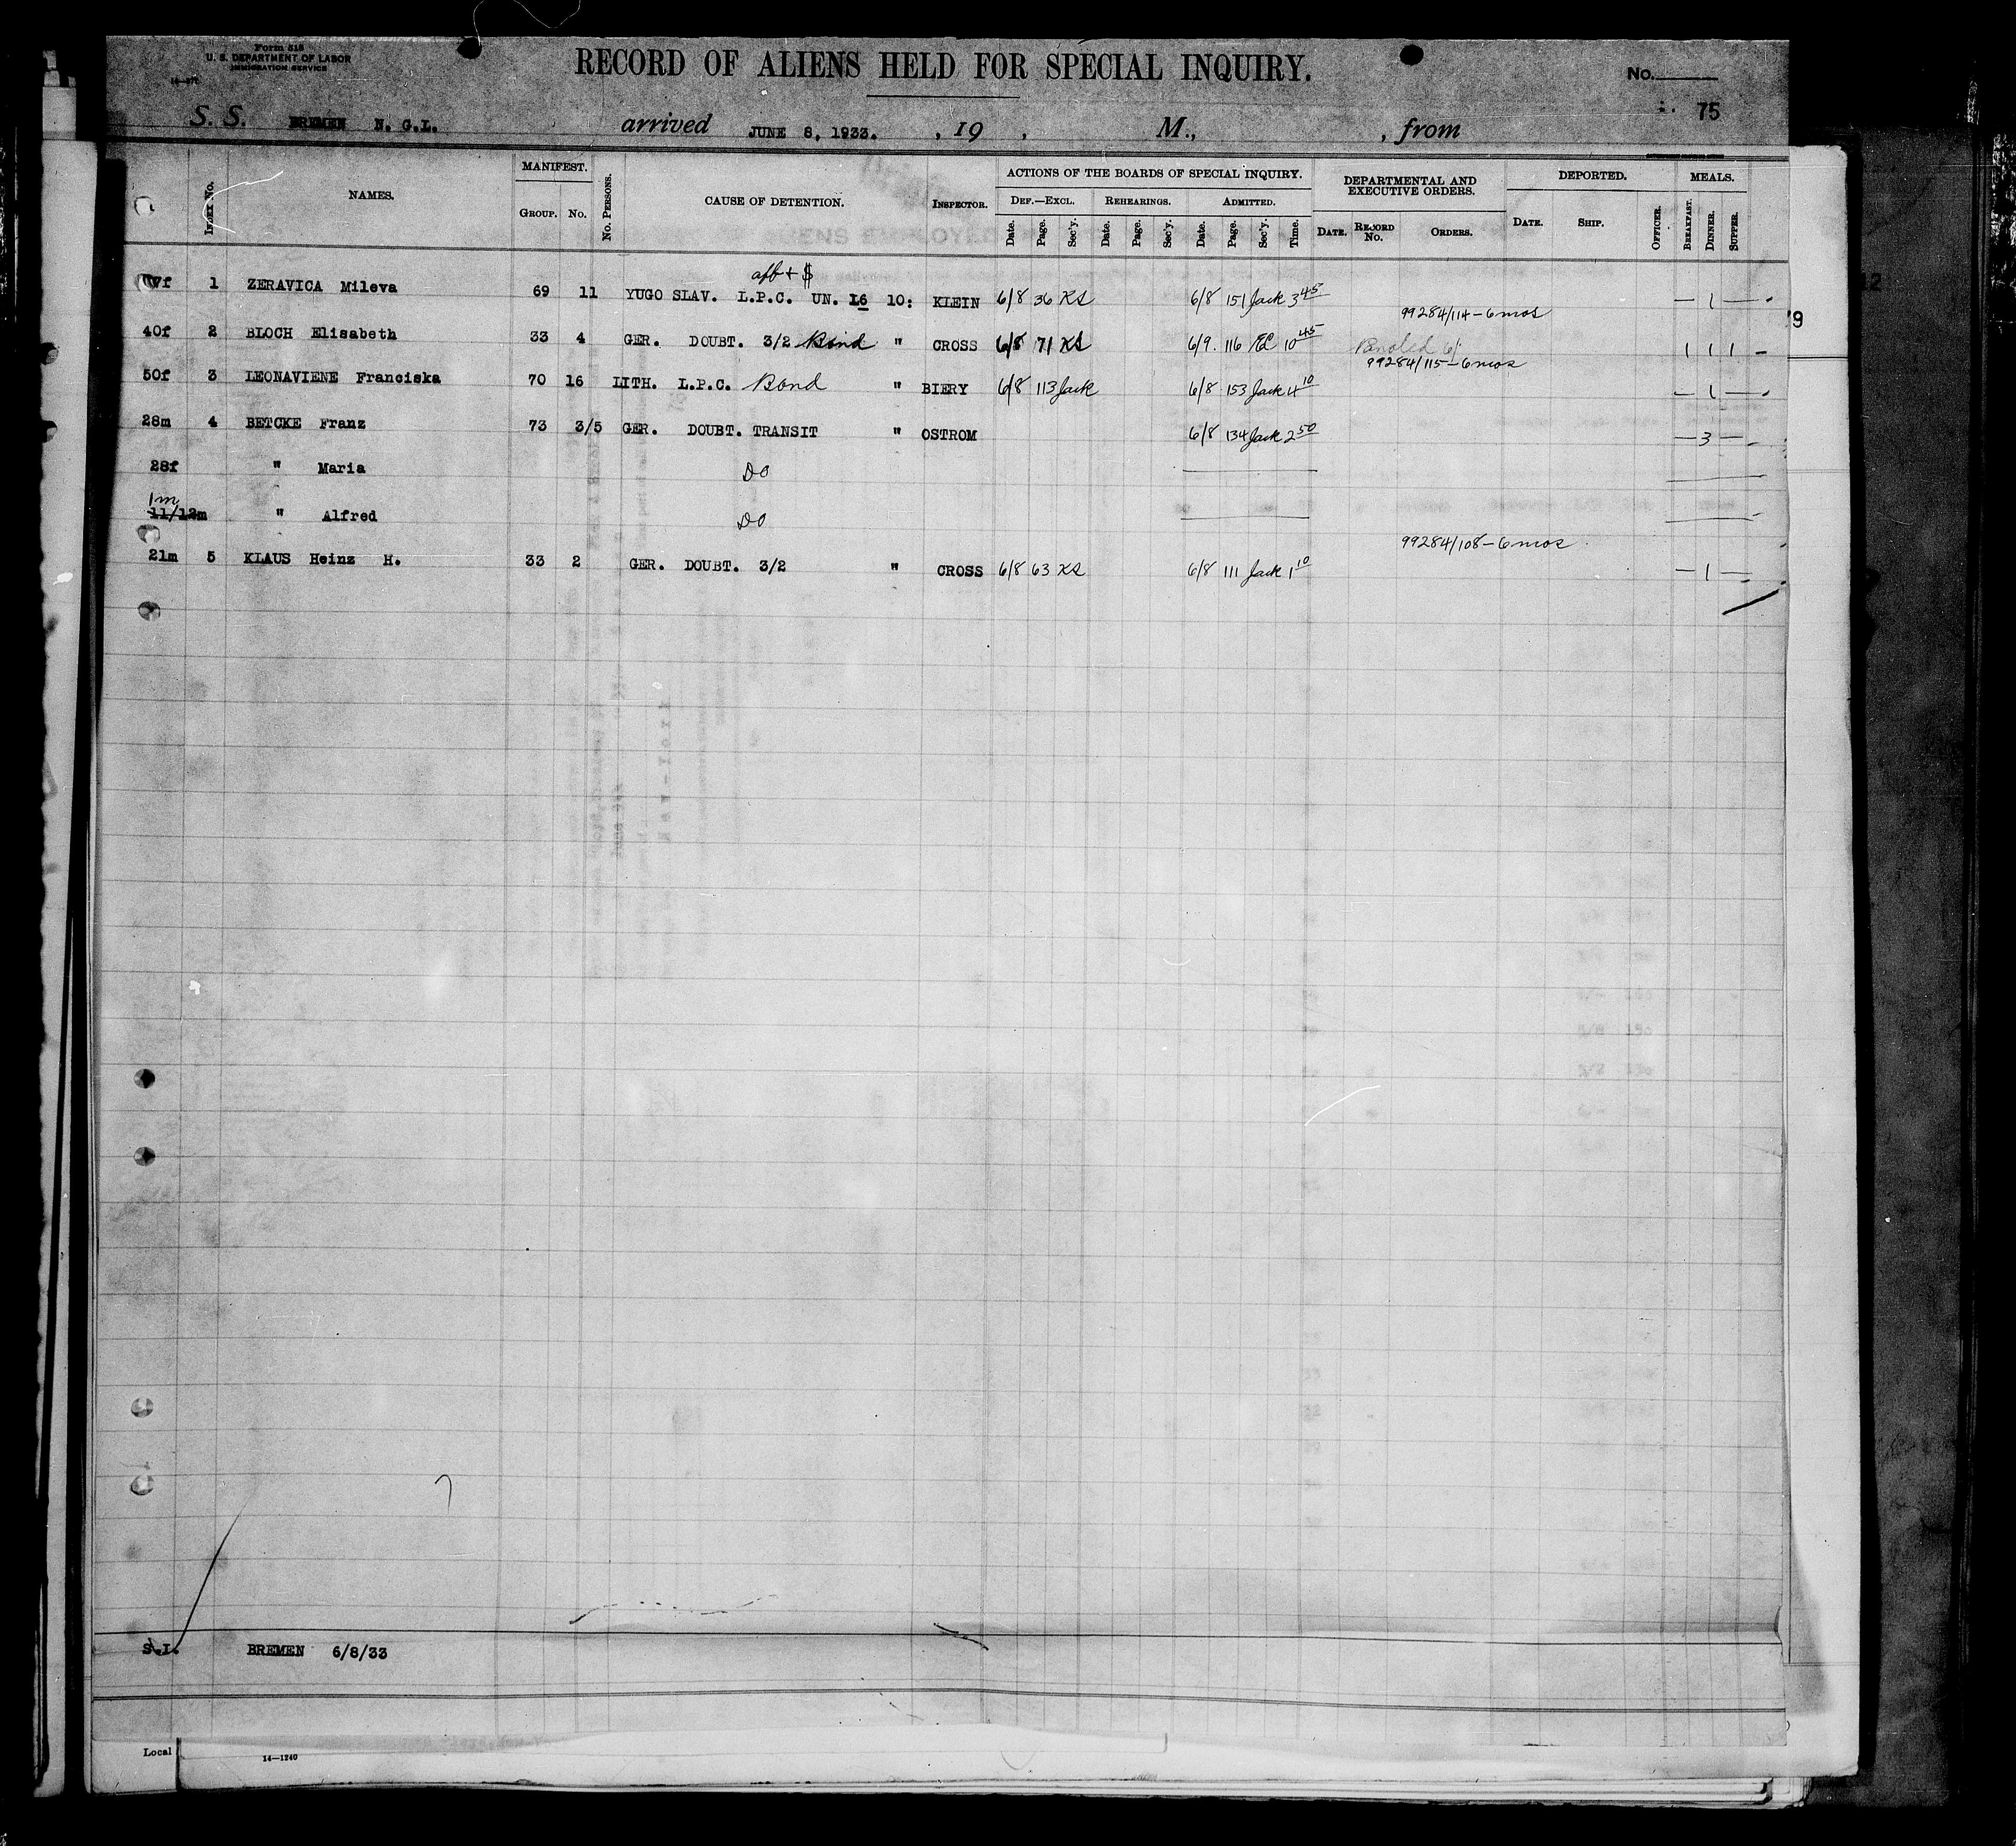 Form 518
U. S. DEPARTMENT OF LABOR
IMMIGRATION SERVICE
RECORD OF ALIENS HELD FOR SPECIAL INQUIRY.
No.
75
S. S. BREMEN N. G. L. arrived JUNE 8, 1933. , 19 , M., , from
INDEX No. NAMES. MANIFEST. GROUP. No. No. PERSONS. CAUSE OF DETENTION. INSPECTOR. ACTIONS OF THE BOARDS OF SPECIAL INQUIRY. DEPARTMENTAL AND EXECUTIVE ORDERS. DEPORTED. MEALS.
DEF.—EXCL. REHEARINGS. ADMITTED.
Date. Page. Sec'y. Date. Page. Sec'y. Date. Page. Sec'y. Time. DATE. RECORD No. ORDERS. DATE. SHIP. OFFICER. BREAKFAST. DINNER. SUPPER.
aff + $
1 ZERAVICA Mileva 69 11 YUGO SLAV. L.P.C. UN. 16 10: KLEIN 6/8 36 KS 6/8 151 Jack 3 45 — 1 —
99284/114 - 6 mos
40f 2 BLOCH Elisabeth 33 4 GER. DOUBT. 3/2 Bond " CROSS 6/8 71 KS 6/9. 116 10 45 1 1 1 —
99284/115 - 6 mos
50f 3 LEONAVIENE Franciska 70 16 LITH. L.P.C. Bond " BIERY 6/8 113 Jack 6/8 153 Jack 4 10 — 1 —
28m 4 BETCKE Franz 73 3/5 GER. DOUBT. TRANSIT " OSTROM 6/8 134 Jack 2 50 — 3 —
28f " Maria DO
1m
11/12m " Alfred DO
99284/108 - 6 mos
21m 5 KLAUS Heinz H. 33 2 GER. DOUBT. 3/2 " CROSS 6/8 63 KS 6/8 111 Jack 1 10 — 1 —
S.I. BREMEN 6/8/33
Local
14—1240